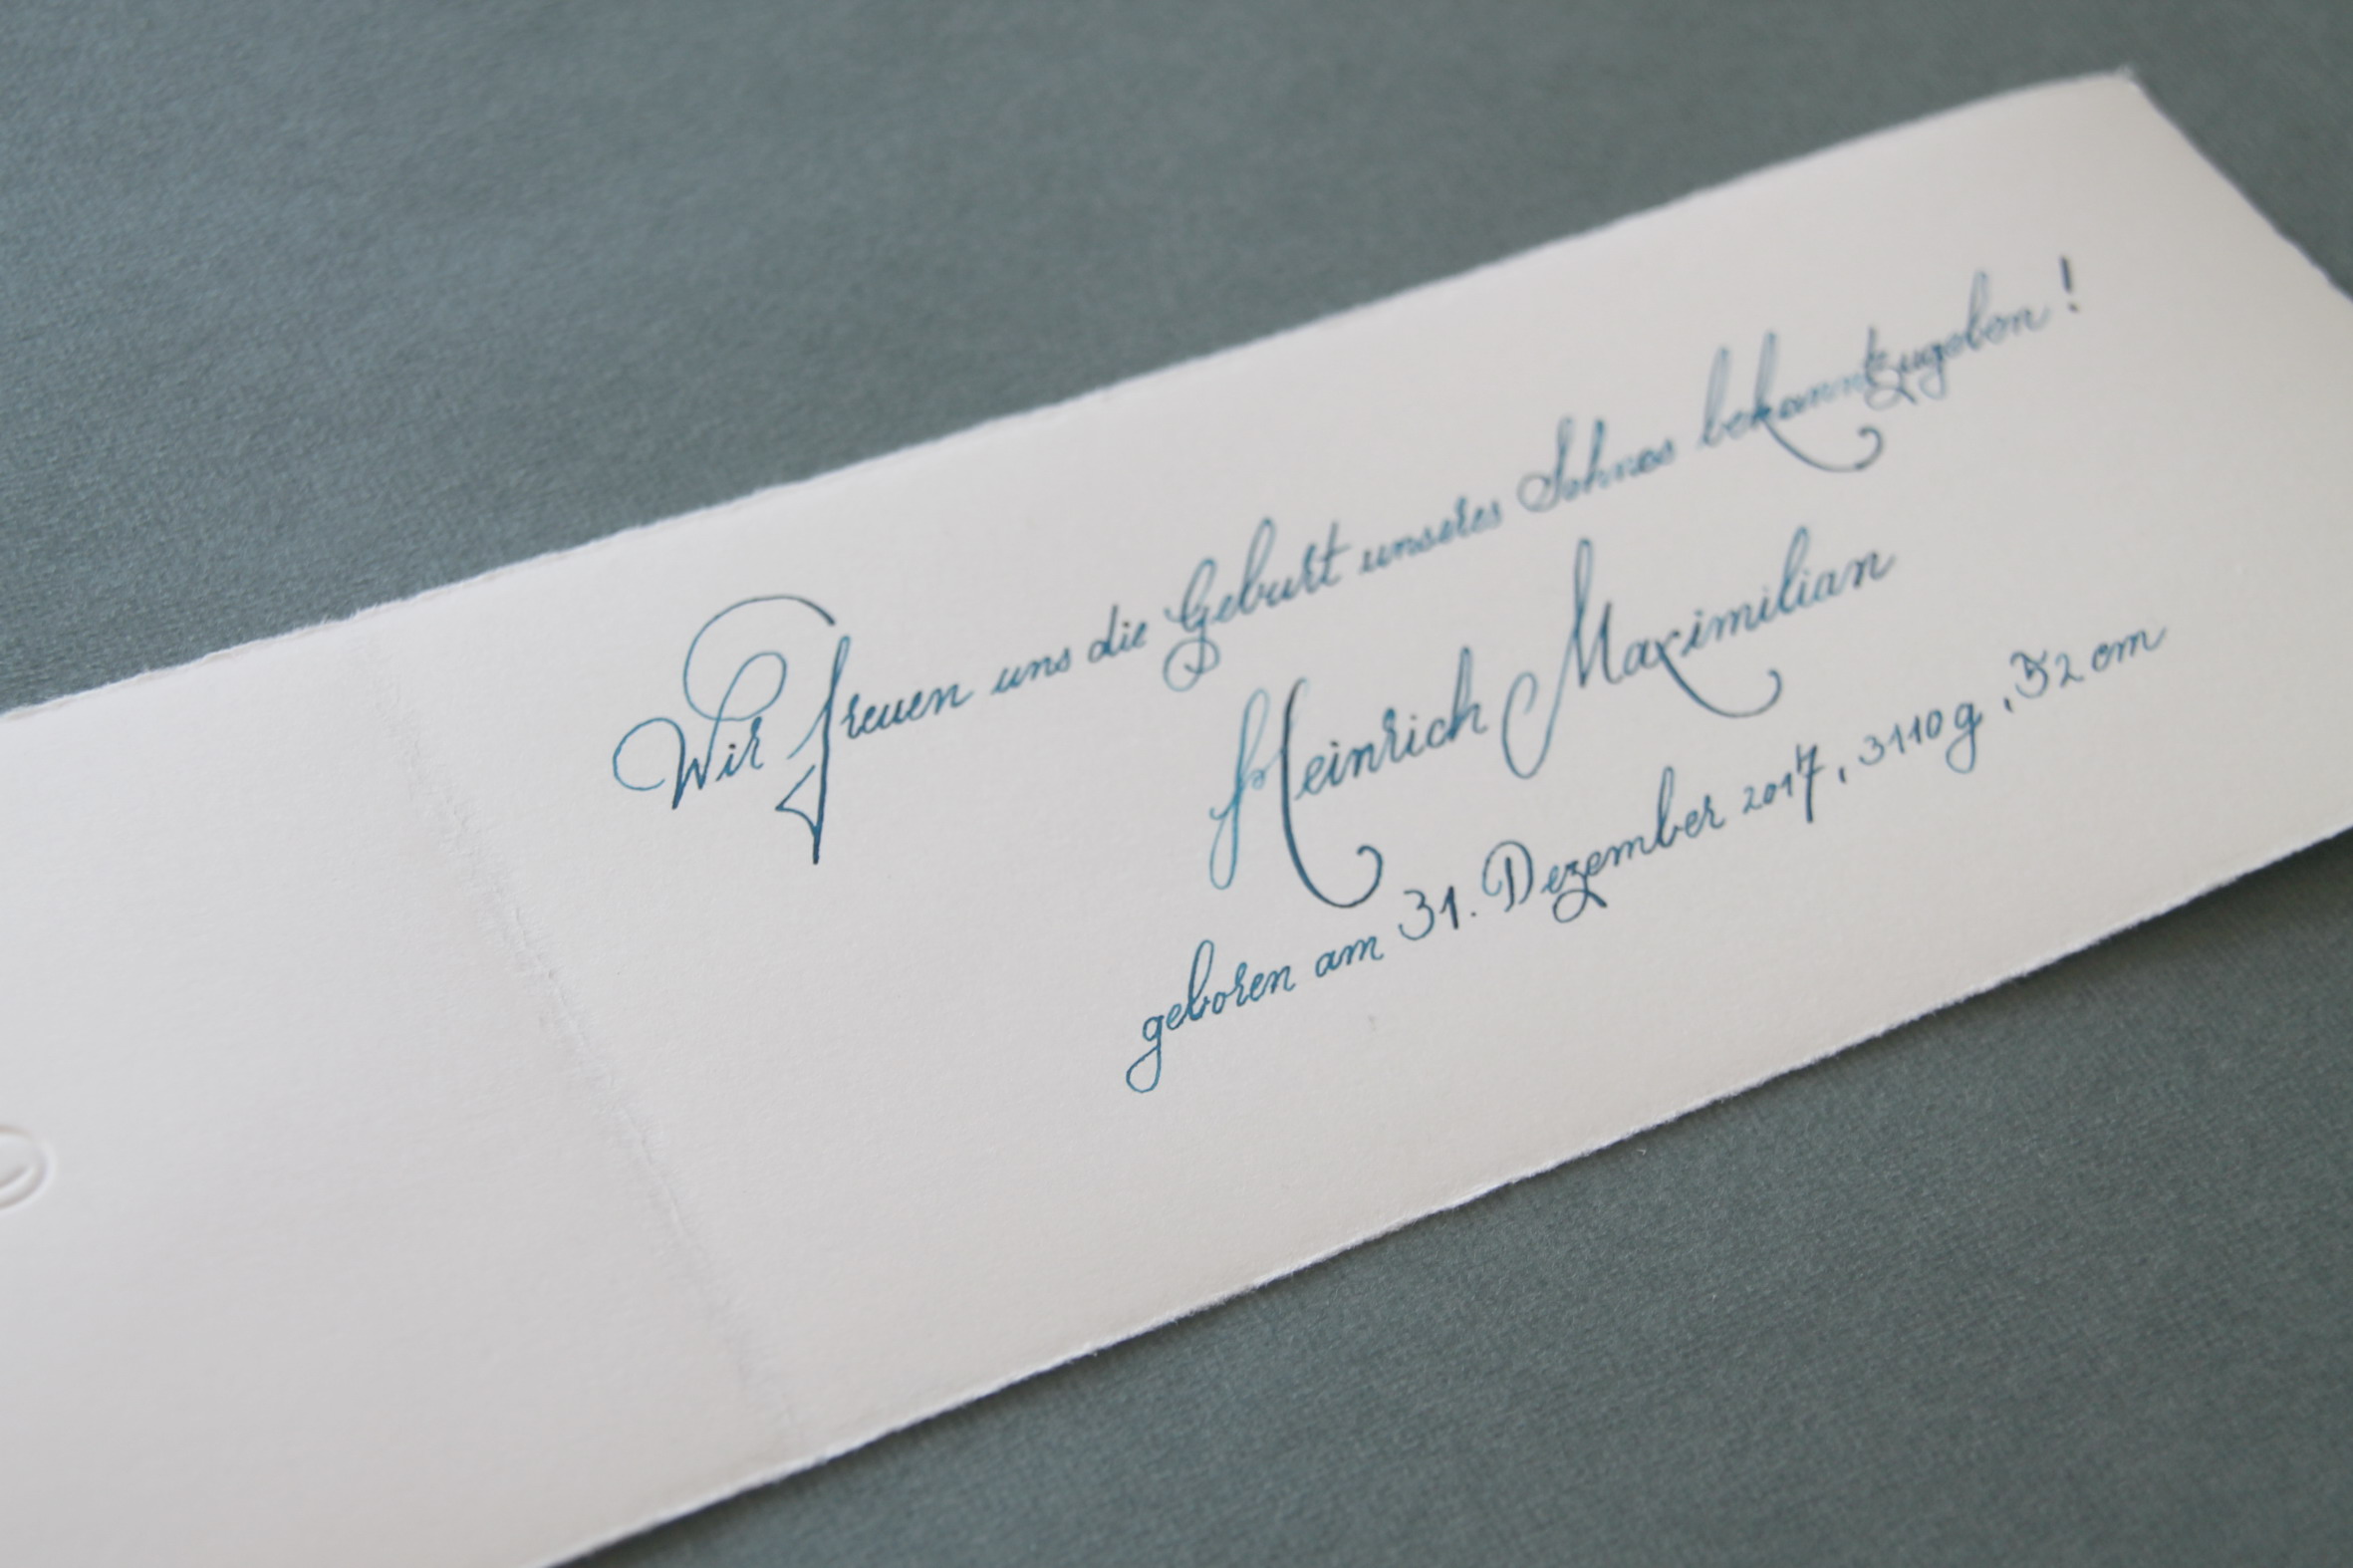 Wir freuen uns die Geburt unseres Sohnes bekanntzugeben!
Heinrich Maximilian
geboren am 31. Dezember 2017, 3110g, 52 cm